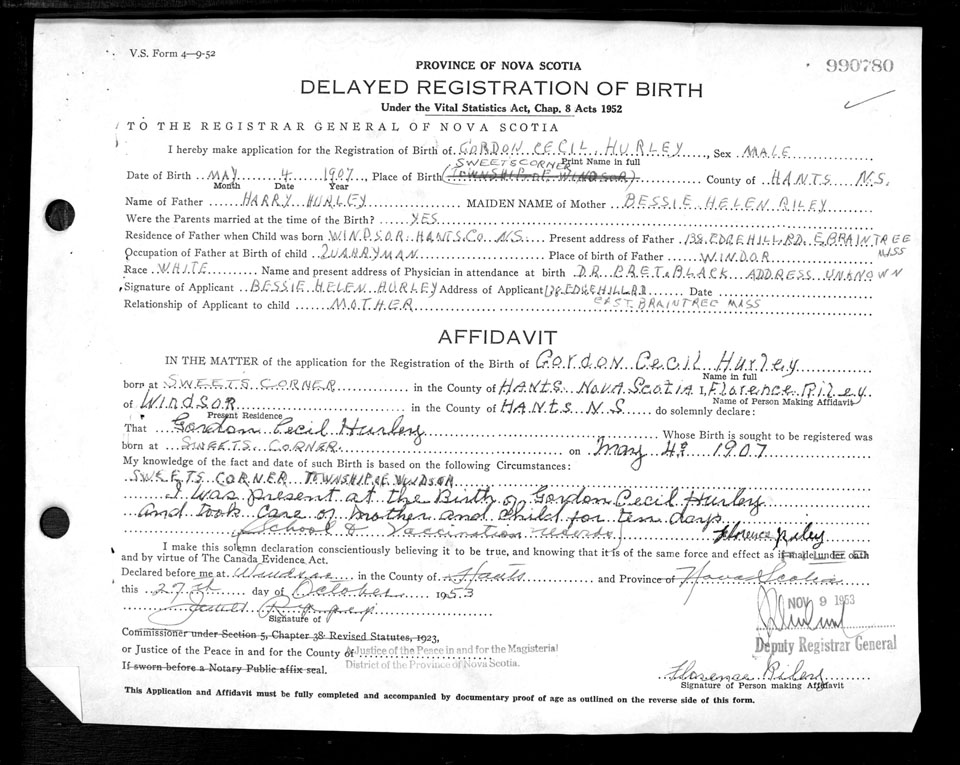 V.S. Form 4—9-52
990780
PROVINCE OF NOVA SCOTIA
DELAYED REGISTRATION OF BIRTH
Under the Vital Statistics Act, Chap. 8 Acts 1952
TO THE REGISTRAR GENERAL OF NOVA SCOTIA
I hereby make application for the Registration of Birth of GORDON CECIL HURLEY, Sex MALE
SWEETS CORNER Print Name in full
Date of Birth MAY 4 1907 Place of Birth (TOWNSHIP OF WINDSOR) County of HANTS N.S.
Month Date Year
Name of Father HARRY HURLEY MAIDEN NAME of Mother BESSIE HELEN RILEY
Were the Parents married at the time of the Birth? YES
Residence of Father when Child was born WINDSOR HANTS CO N.S. Present address of Father 138 EDGEHILL RD. E. BRAINTREE
MASS
Occupation of Father at Birth of child QUARRYMAN Place of birth of Father WINDOR
Race WHITE Name and present address of Physician in attendance at birth DR PRET. BLACK ADDRESS UNKNOWN
Signature of Applicant BESSIE HELEN HURLEY Address of Applicant 138 EDGEHILL RD Date
Relationship of Applicant to child MOTHER EAST BRAINTREE MASS
AFFIDAVIT
IN THE MATTER of the application for the Registration of the Birth of Gordon Cecil Hurley
Name in full
born at SWEETS CORNER in the County of HANTS NOVA SCOTIA I, Florence Riley
Name of Person Making Affidavit
of WINDSOR in the County of HANTS N S do solemnly declare:
Present Residence
That Gordon Cecil Hurley Whose Birth is sought to be registered was
born at SWEETS CORNER on May 4th 1907
My knowledge of the fact and date of such Birth is based on the following Circumstances:
SWEETS CORNER TOWNSHIP OF WINDSOR
I was present at the Birth of Gordon Cecil Hurley
and took care of mother and child for ten days
(School & Vaccination records) Florence Riley
I make this solemn declaration conscientiously believing it to be true, and knowing that it is of the same force and effect as if made under oath
and by virtue of The Canada Evidence Act.
Declared before me at Windsor in the County of Hants and Province of Nova Scotia
this 27th day of October 1953
James
Signature of
NOV 9 1953
Commissioner under Section 5, Chapter 38 Revised Statutes, 1923,
or Justice of the Peace in and for the County of
A Justice of the Peace in and for the Magisterial
District of the Province of Nova Scotia.
Deputy Registrar General
If sworn before a Notary Public affix seal.
Florence Riley
Signature of Person making Affidavit
This Application and Affidavit must be fully completed and accompanied by documentary proof of age as outlined on the reverse side of this form.